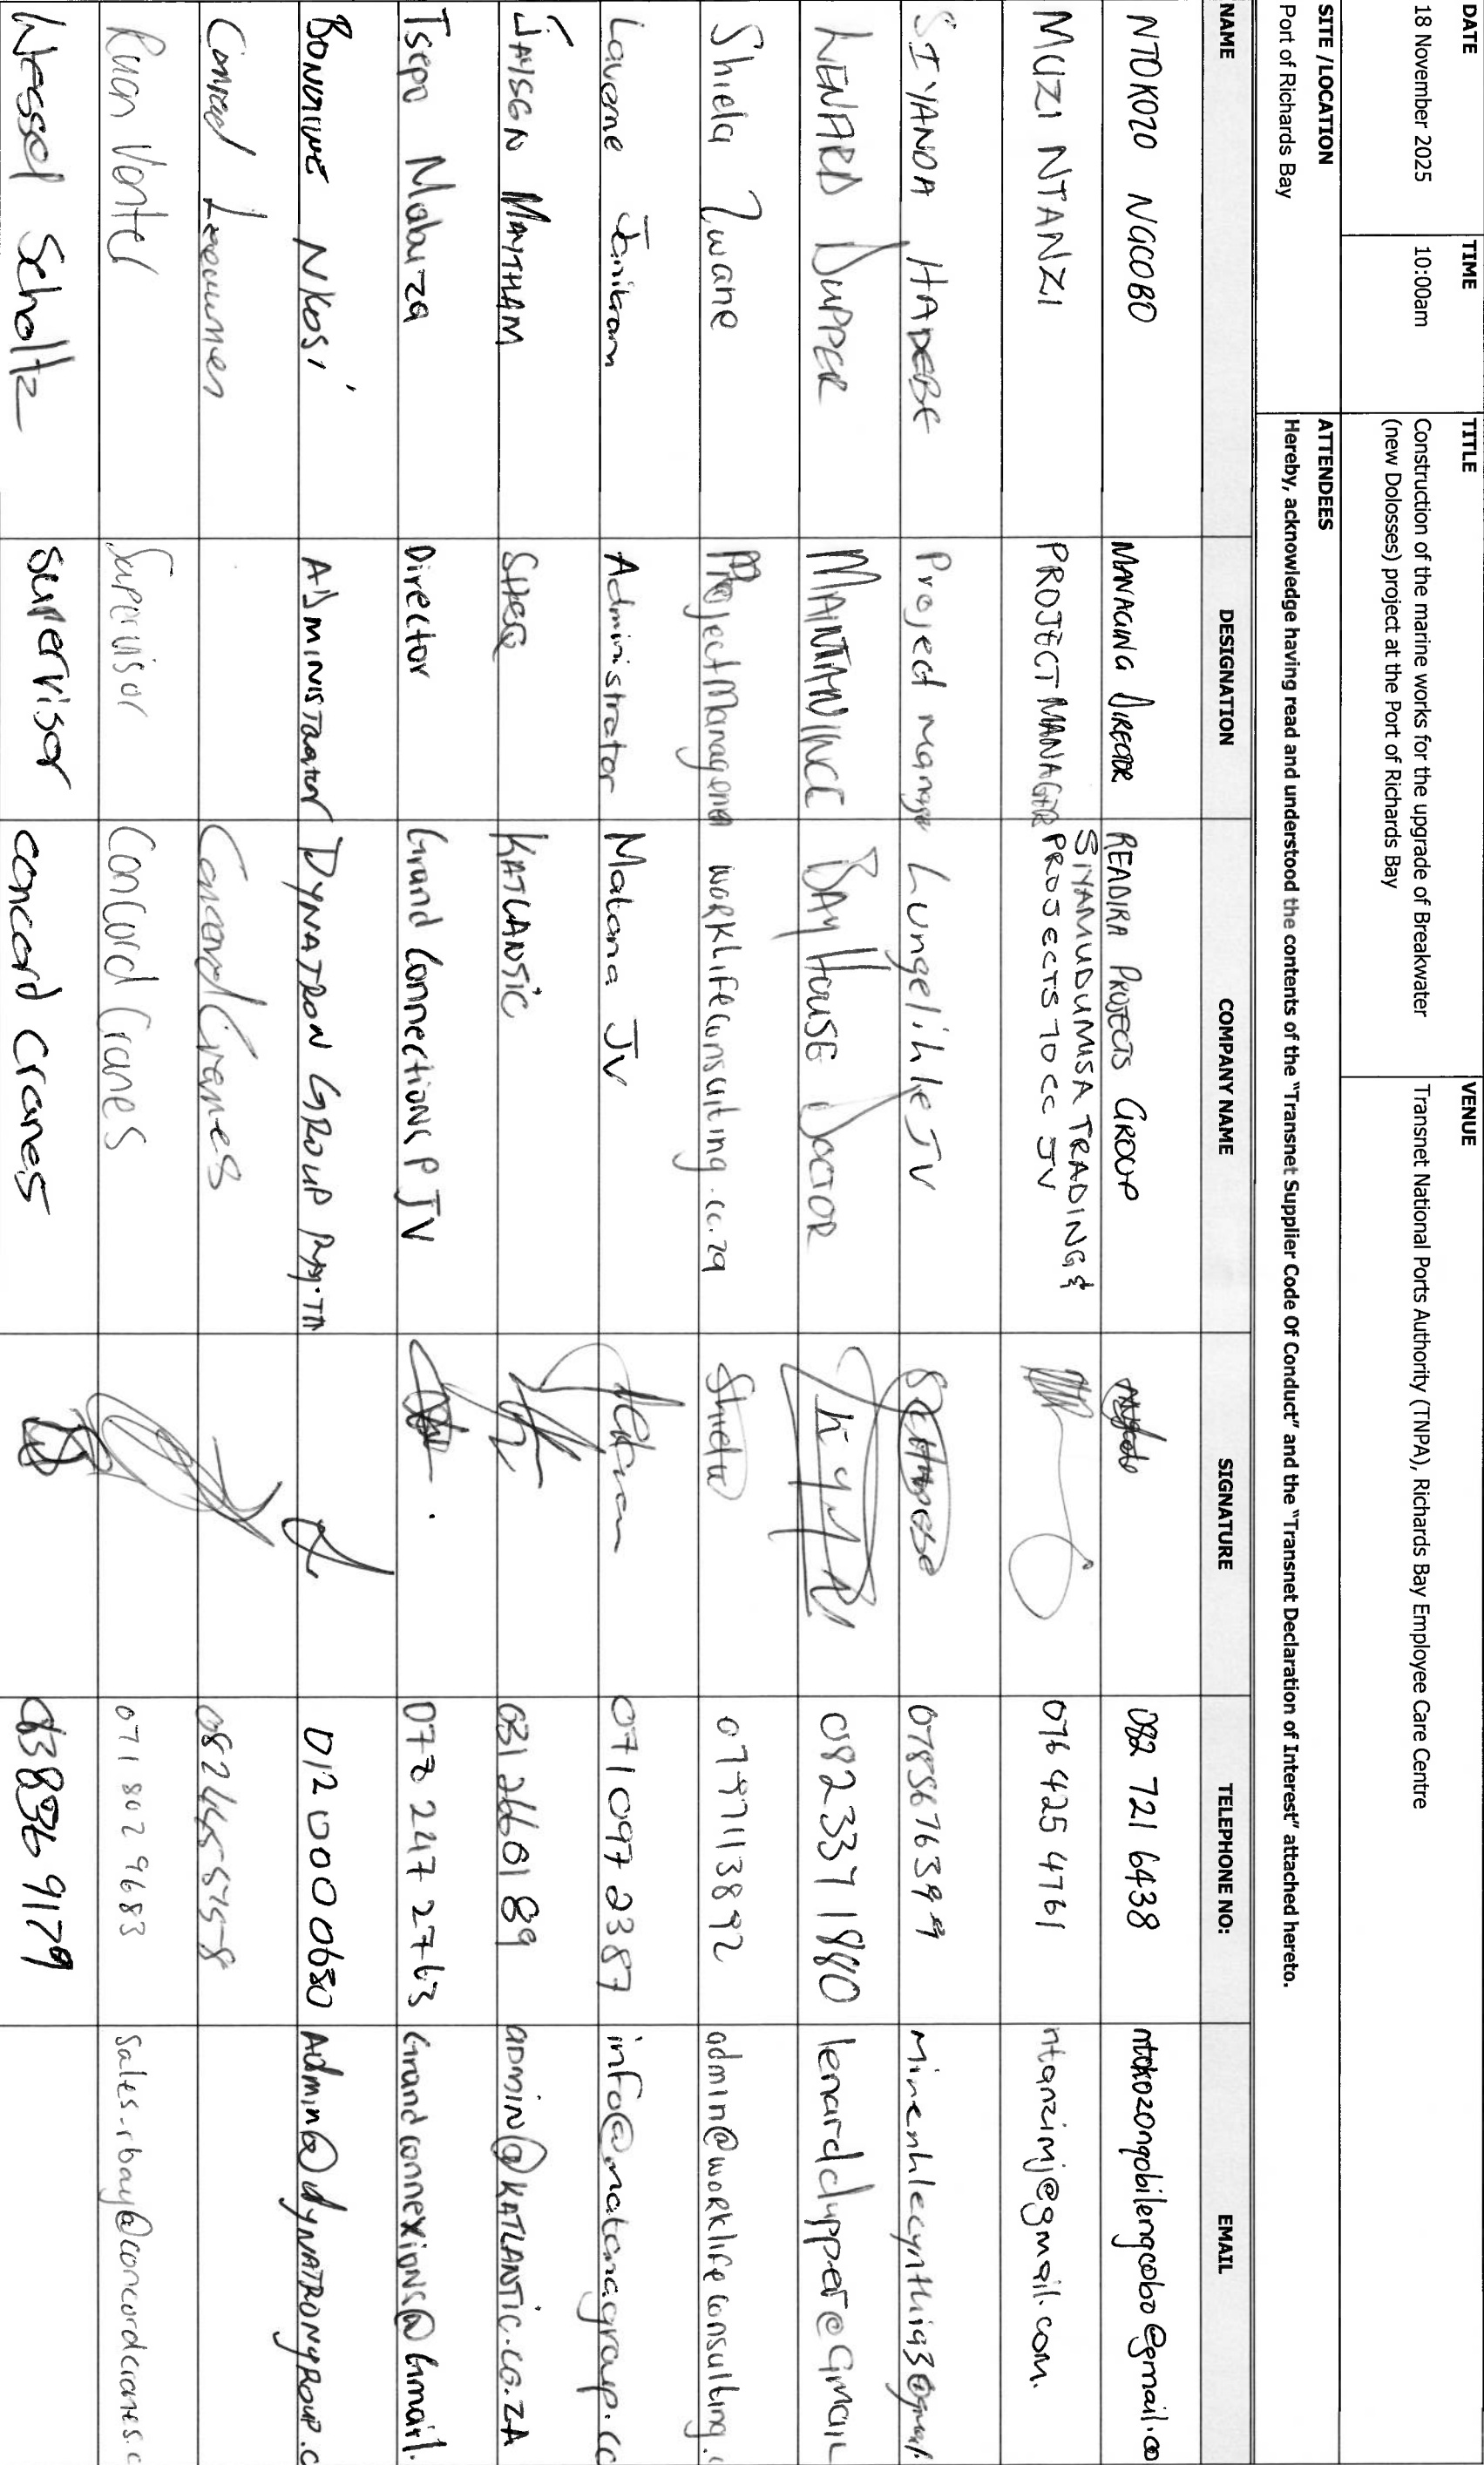 DATE TIME TITLE VENUE
18 November 2025 10:00am Construction of the marine works for the upgrade of Breakwater Transnet National Ports Authority (TNPA), Richards Bay Employee Care Centre
(new Dolosses) project at the Port of Richards Bay
SITE /LOCATION ATTENDEES
Port of Richards Bay Hereby, acknowledge having read and understood the contents of the "Transnet Supplier Code Of Conduct" and the "Transnet Declaration of Interest" attached hereto.
NAME DESIGNATION COMPANY NAME SIGNATURE TELEPHONE NO: EMAIL
NTOKOZO NGCOBO MANAGING DIRECTOR READIRA PROJECTS GROUP 082 721 6438 ntokozongobilengcobo@gmail.co
SIYAMUDUMISA TRADING &
MUZI NTANZI PROJECT MANAGER PROJECTS 70 CC JV 076 425 4761 ntanzimj@gmail.com.
SIYANDA HADEBE Project manager Lungelihle JV minenhlecynthia93@gmail.
LENARD DUPPER MAINTANINCE BAY HOUSE DOCTOR 082 337 1880 lenarddupper@GMAIL
Shiela Zwane Project Management WORKLIFEconsulting.co.za Shiela 0797113892 admin@worklifeconsulting.c
Laverne Janikram Administrator Matona JV 071 097 2387 info@matonagroup.co
JAYSEN MAYTHAM SHEQ KATLANTIC 0312660189 ADMIN@KATLANTIC.CO.ZA
Tsepo Mabuza Director Grand Connections P JV 072 247 2763 Grandconnexions@Gmail.
BONGIWE NKOSI ADMINISTRATOR DYNATRON GROUP 012 0000680 Admin@DYNATRONGROUP.C
Conrad Concord Cranes
Ruan Venter Supervisor Concord Cranes 071 802 9683 sales.rbay@concordcranes.c
Wessel Scholtz Supervisor concord Cranes 063 836 9179